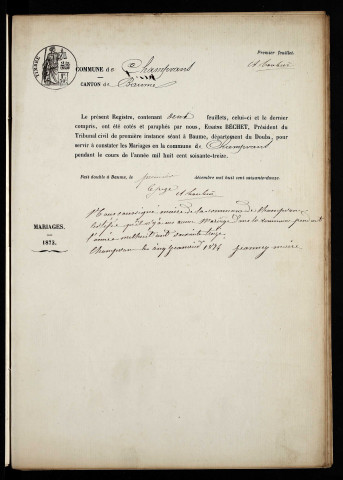 Premier feuillet.
TIMBRE
COMMUNE de Champvans
CANTON de Baume
Le présent Registre, contenant deux feuillets, celui-ci et le dernier
compris, ont été cotés et paraphés par nous, BECHET, Président du
Tribunal civil de première instance séant à Baume, département du Doubs, pour
servir à constater les Mariages en la commune de Champvans
pendant le cours de l'année mil huit cent soixante-treize.
Fait double à Baume, le décembre mil huit cent soixante-douze.
MARIAGES.
1873.
Nous soussigné maire de la commune de Champvans
qu'il n'y a eu aucun mariage dans la commune pendant
l'année mil huit cent soixante treize
Champvans le cinq janvier 1874 Jeanney maire